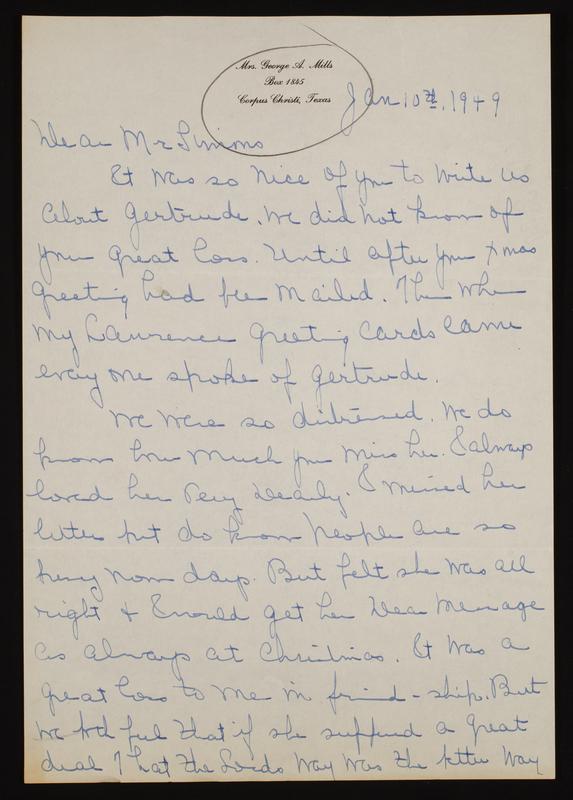 Mrs. George A. Mills
Box 1845
Corpus Christi, Texas
Jan 10th, 1949
Dear Mr Simons
It was so nice of you to write us
about Gertrude. We did not know of
your great loss. Until after your Xmas
greeting had been mailed. Then when
my Lawrence greeting cards came
every one spoke of Gertrude.
We were so distressed. We do
know how much you miss her. I always
loved her very dearly. I missed her
letters but do know people are so
busy now days. But felt she was all
right & I would get her dear message
as always at Christmas. It was a
great loss to me in friend-ship. But
we both feel that if she suffered a great
deal That the Lords way was the better way